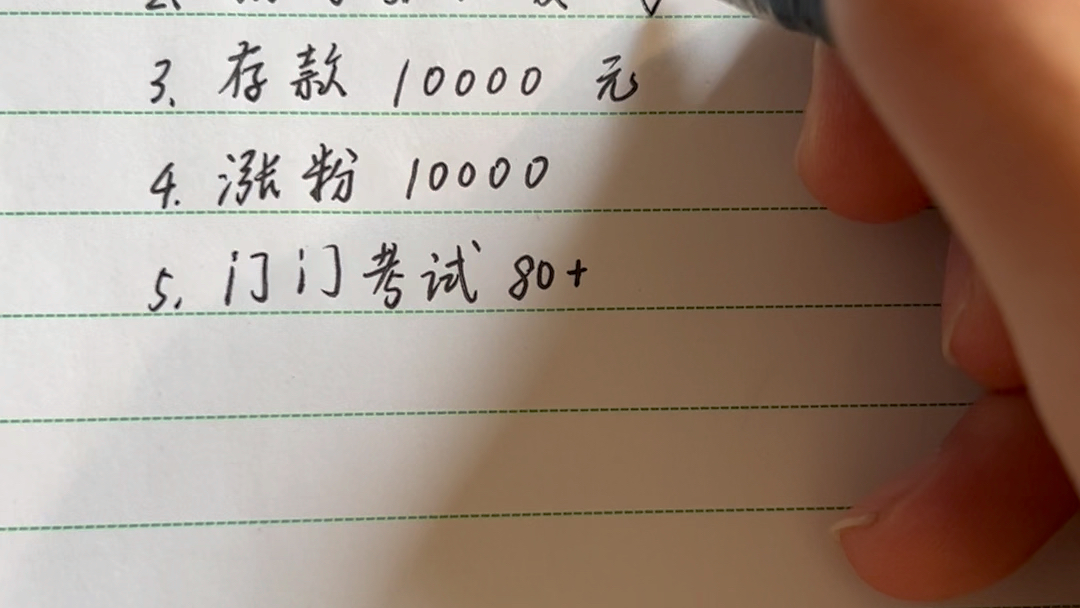 3. 存款 10000 元
4. 涨粉 10000
5. 门门考试 80+